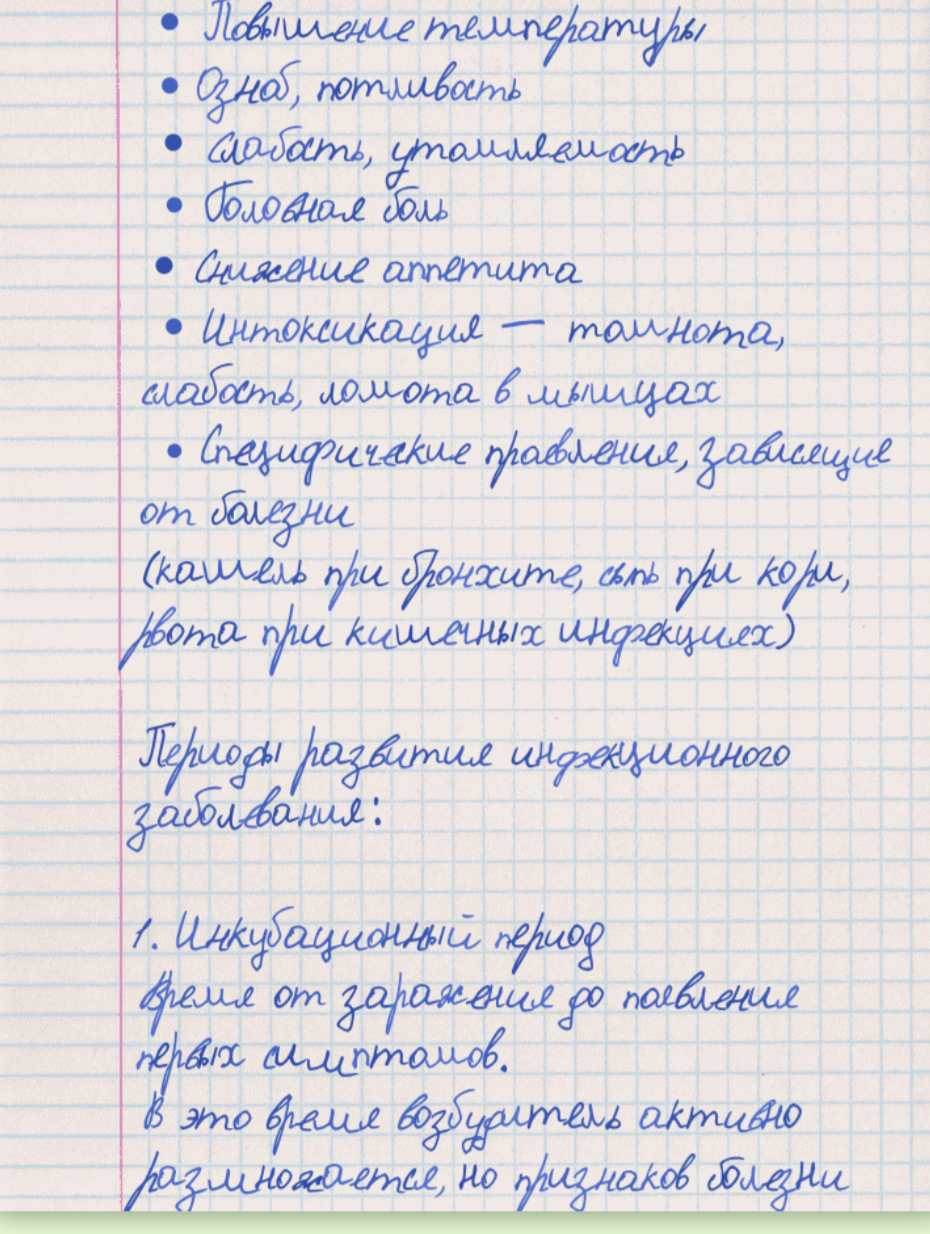 • Повышение температуры
• Озноб, потливость
• слабость, утомляемость
• Головная боль
• Снижение аппетита
• Интоксикация — тошнота,
слабость, ломота в мышцах
• Специфические проявления, зависящие
от болезни
(кашель при бронхите, сыпь при кори,
рвота при кишечных инфекциях)
Периоды развития инфекционного
заболевания:
1. Инкубационный период
Время от заражения до появления
первых симптомов.
В это время возбудитель активно
размножается, но признаков болезни